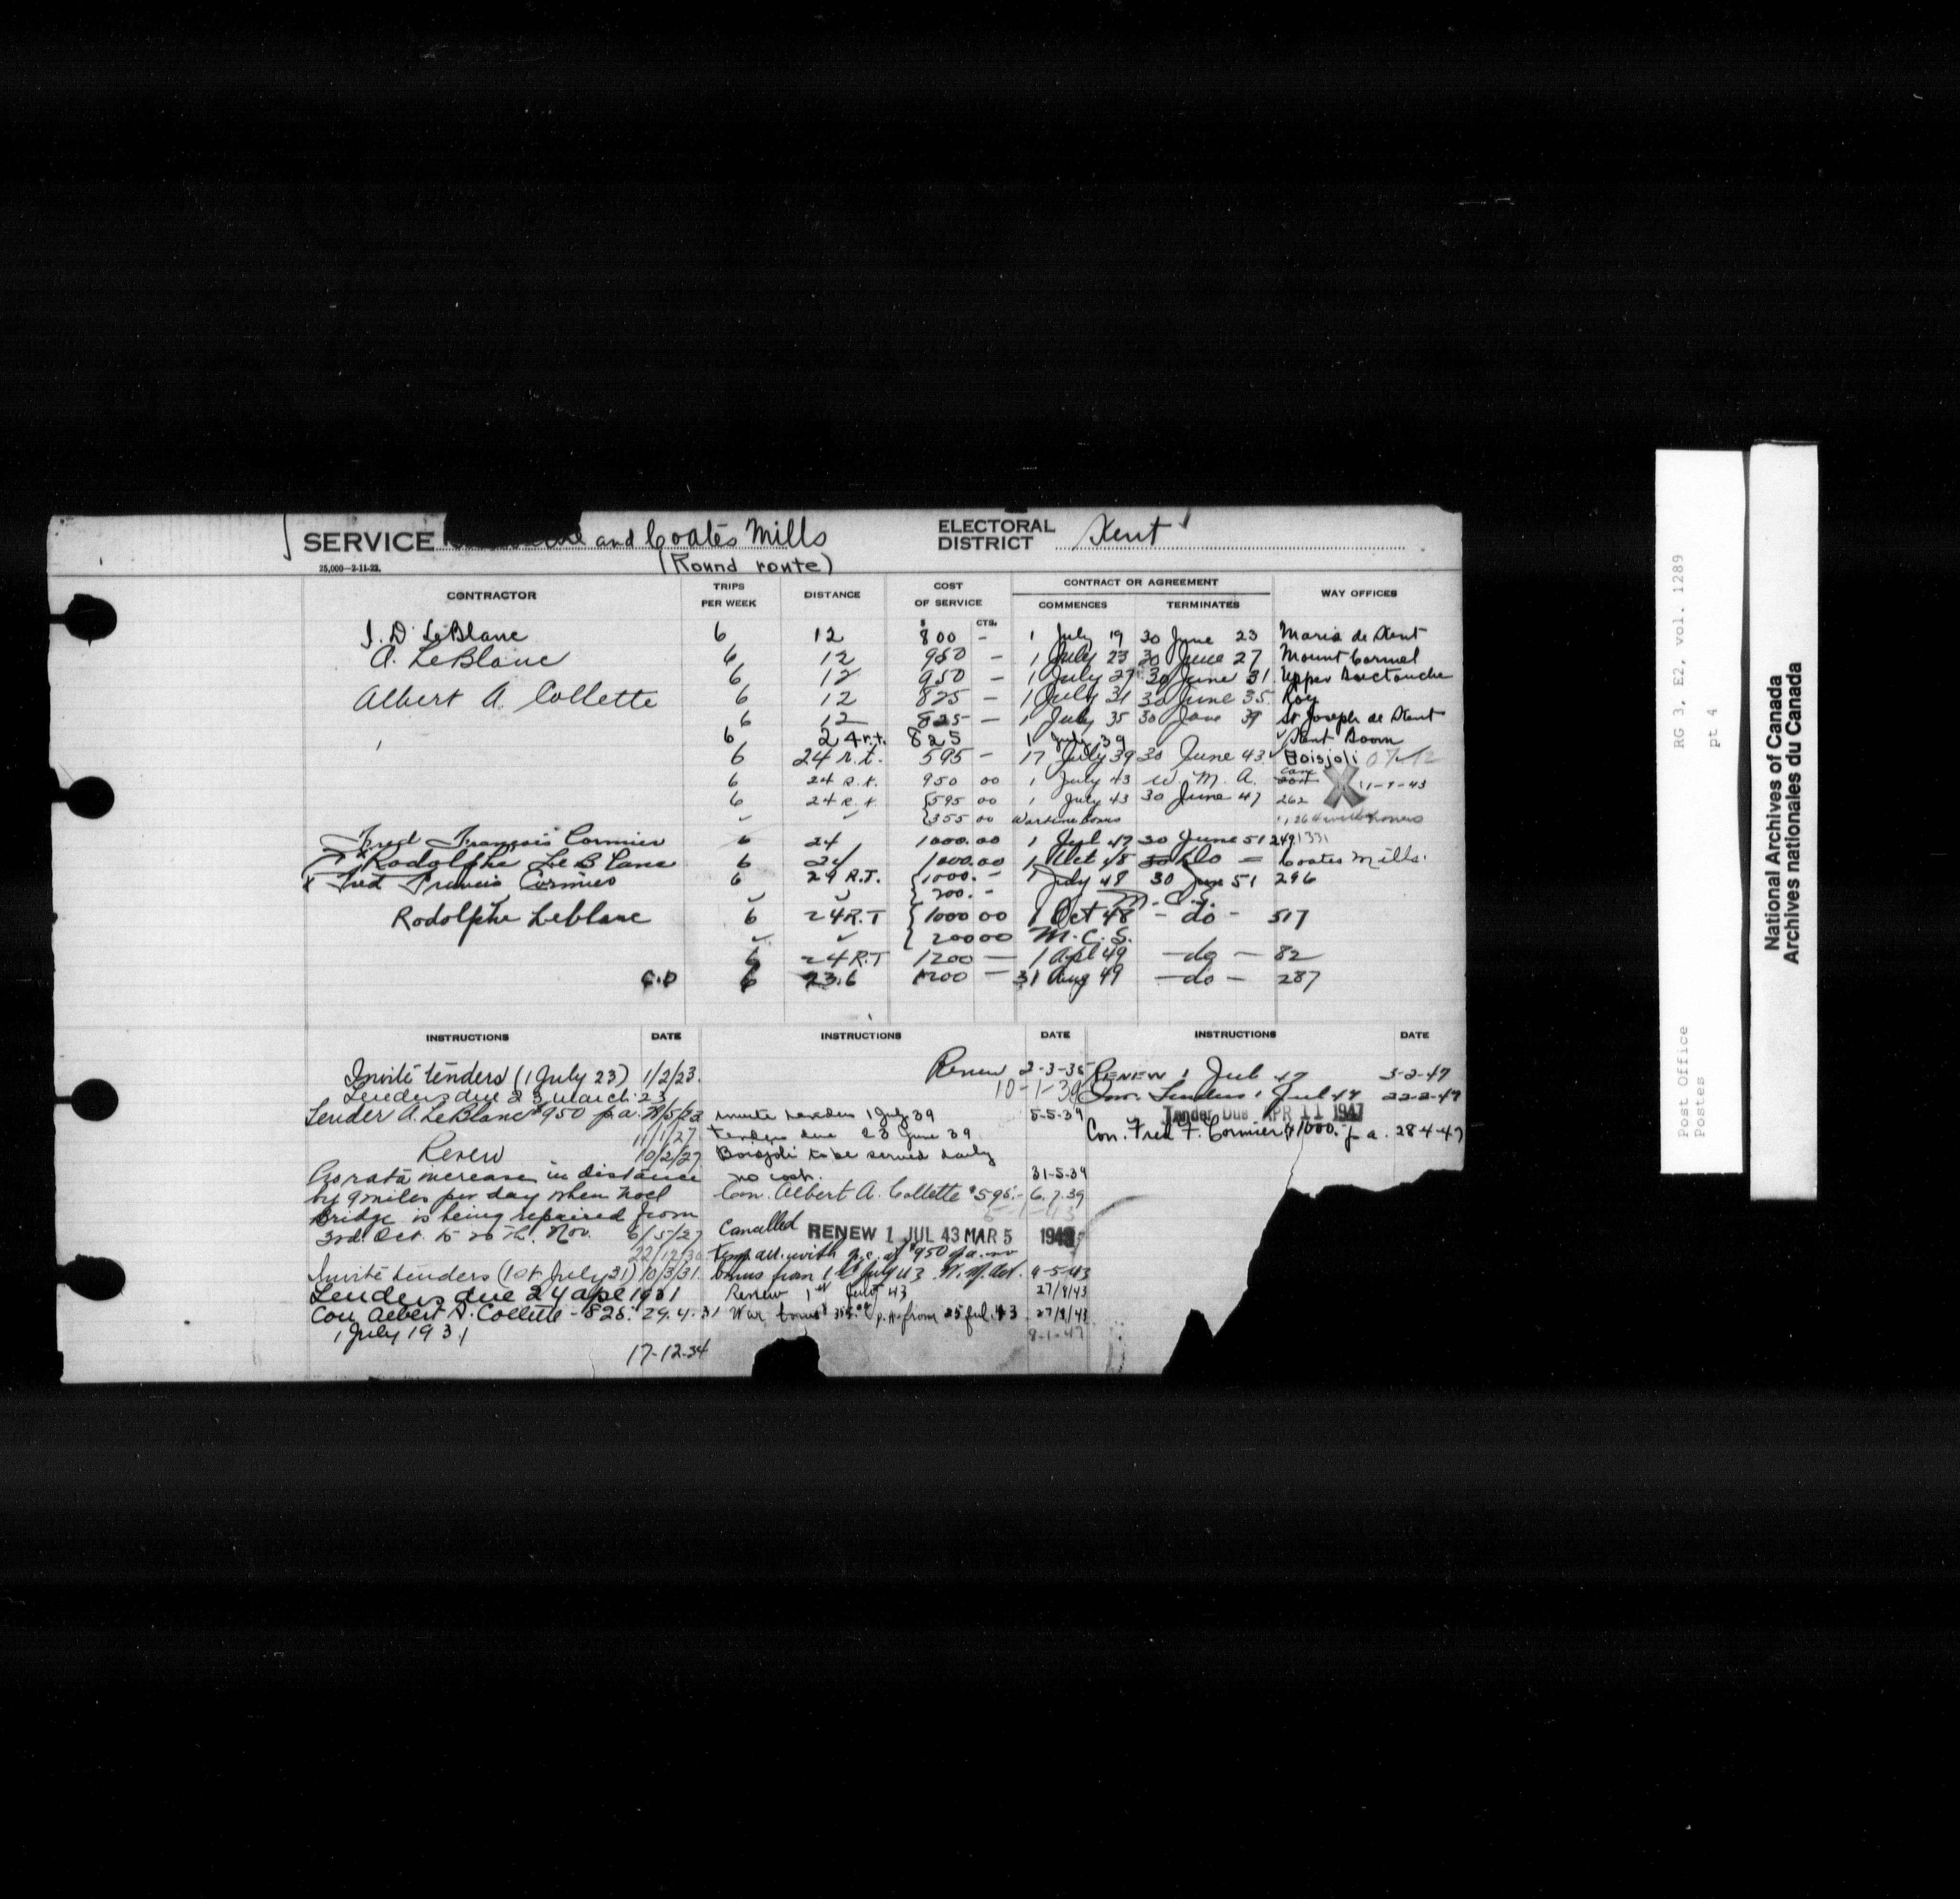 SERVICE and Coates Mills
(Round route)
ELECTORAL DISTRICT Kent
25,000—2-11-22.
CONTRACTOR TRIPS PER WEEK DISTANCE COST OF SERVICE CONTRACT OR AGREEMENT COMMENCES TERMINATES WAY OFFICES
$ CTS.
J. D. LeBlanc 6 12 800 - 1 July 19 30 June 23 Maria de Kent
A. LeBlanc 6 12 950 - 1 July 23 30 June 27 Mount Carmel
6 12 950 - 1 July 27 30 June 31 Upper Buctouche
Albert A. Collette 6 12 825 - 1 July 31 30 June 35 Roy
6 12 825 - 1 July 35 30 June 39 St Joseph de Kent
6 24 r.t. 825 1 July 39 Kent Boom
6 24 r.t. 595 - 17 July 39 30 June 43 Boisjoli
6 24 R.t. 950 00 1 July 43 W. M. A. 11-9-43
6 24 R.t. {595 00 1 July 43 30 June 47 262
{355 00 Wartime bonus
Fred François Cormier 6 24 1000.00 1 Jul 47 30 June 51 249 1331
Rodolphe LeBlanc 6 24 1000.00 1 Oct 48 do - Coates Mills.
x Fred Francis Cormier 6 24 R.T. {1000. - 1 July 48 30 June 51 296
{200. - M.C.S.
Rodolphe Leblanc 6 24 R.T {1000 00 1 Oct 48 - do - 517
{200 00 M.C.S.
6 24 R.T 1200 - 1 Apl 49 - do - 82
6 23.6 1200 - 31 Aug 49 - do - 287
INSTRUCTIONS DATE INSTRUCTIONS DATE INSTRUCTIONS DATE
Invite tenders (1 July 23) 1/2/23.
Tenders due 23 March 23
Tender A. LeBlanc $950 p.a.
11/1/27
Renew 10/2/27
Pro rata increase in distance
by 9 miles per day when Noel
Bridge is being repaired from
3rd Oct. to 26th. Nov. 6/5/27
22/12/30
Invite tenders (1st July 31) 10/3/31.
Tenders due 24 Apl 1931
Con Albert A. Collette - 825. 29.4.31
1 July 1931
17-12-34
Renew 2-3-35
10-1-39
Invite tenders 1 July 39 5-5-39
Tenders due 23 June 39
Boisjoli to be served daily
no cost. 31-5-39
Con. Albert A. Collette $595.- 6.7.39
Cancelled RENEW 1 JUL 43 MAR 5
Temp arr. with p.c. at $950 p.a. no
bonus from 1st July 43 W.M. Act. 4-5-43
Renew 1st July 43 27/8/43
War bonus 355.00 p.a. from 27/8/43
8-1-47
RENEW 1 Jul 47 3-2-47
Inv. Tenders 1 Jul 47 22-2-47
Tender Due APR 11 1947
Con. Fred F. Cormier $1000. p.a. 28-4-47
RG 3, E2, vol. 1289
pt 4
Post Office
Postes
National Archives of Canada
Archives nationales du Canada